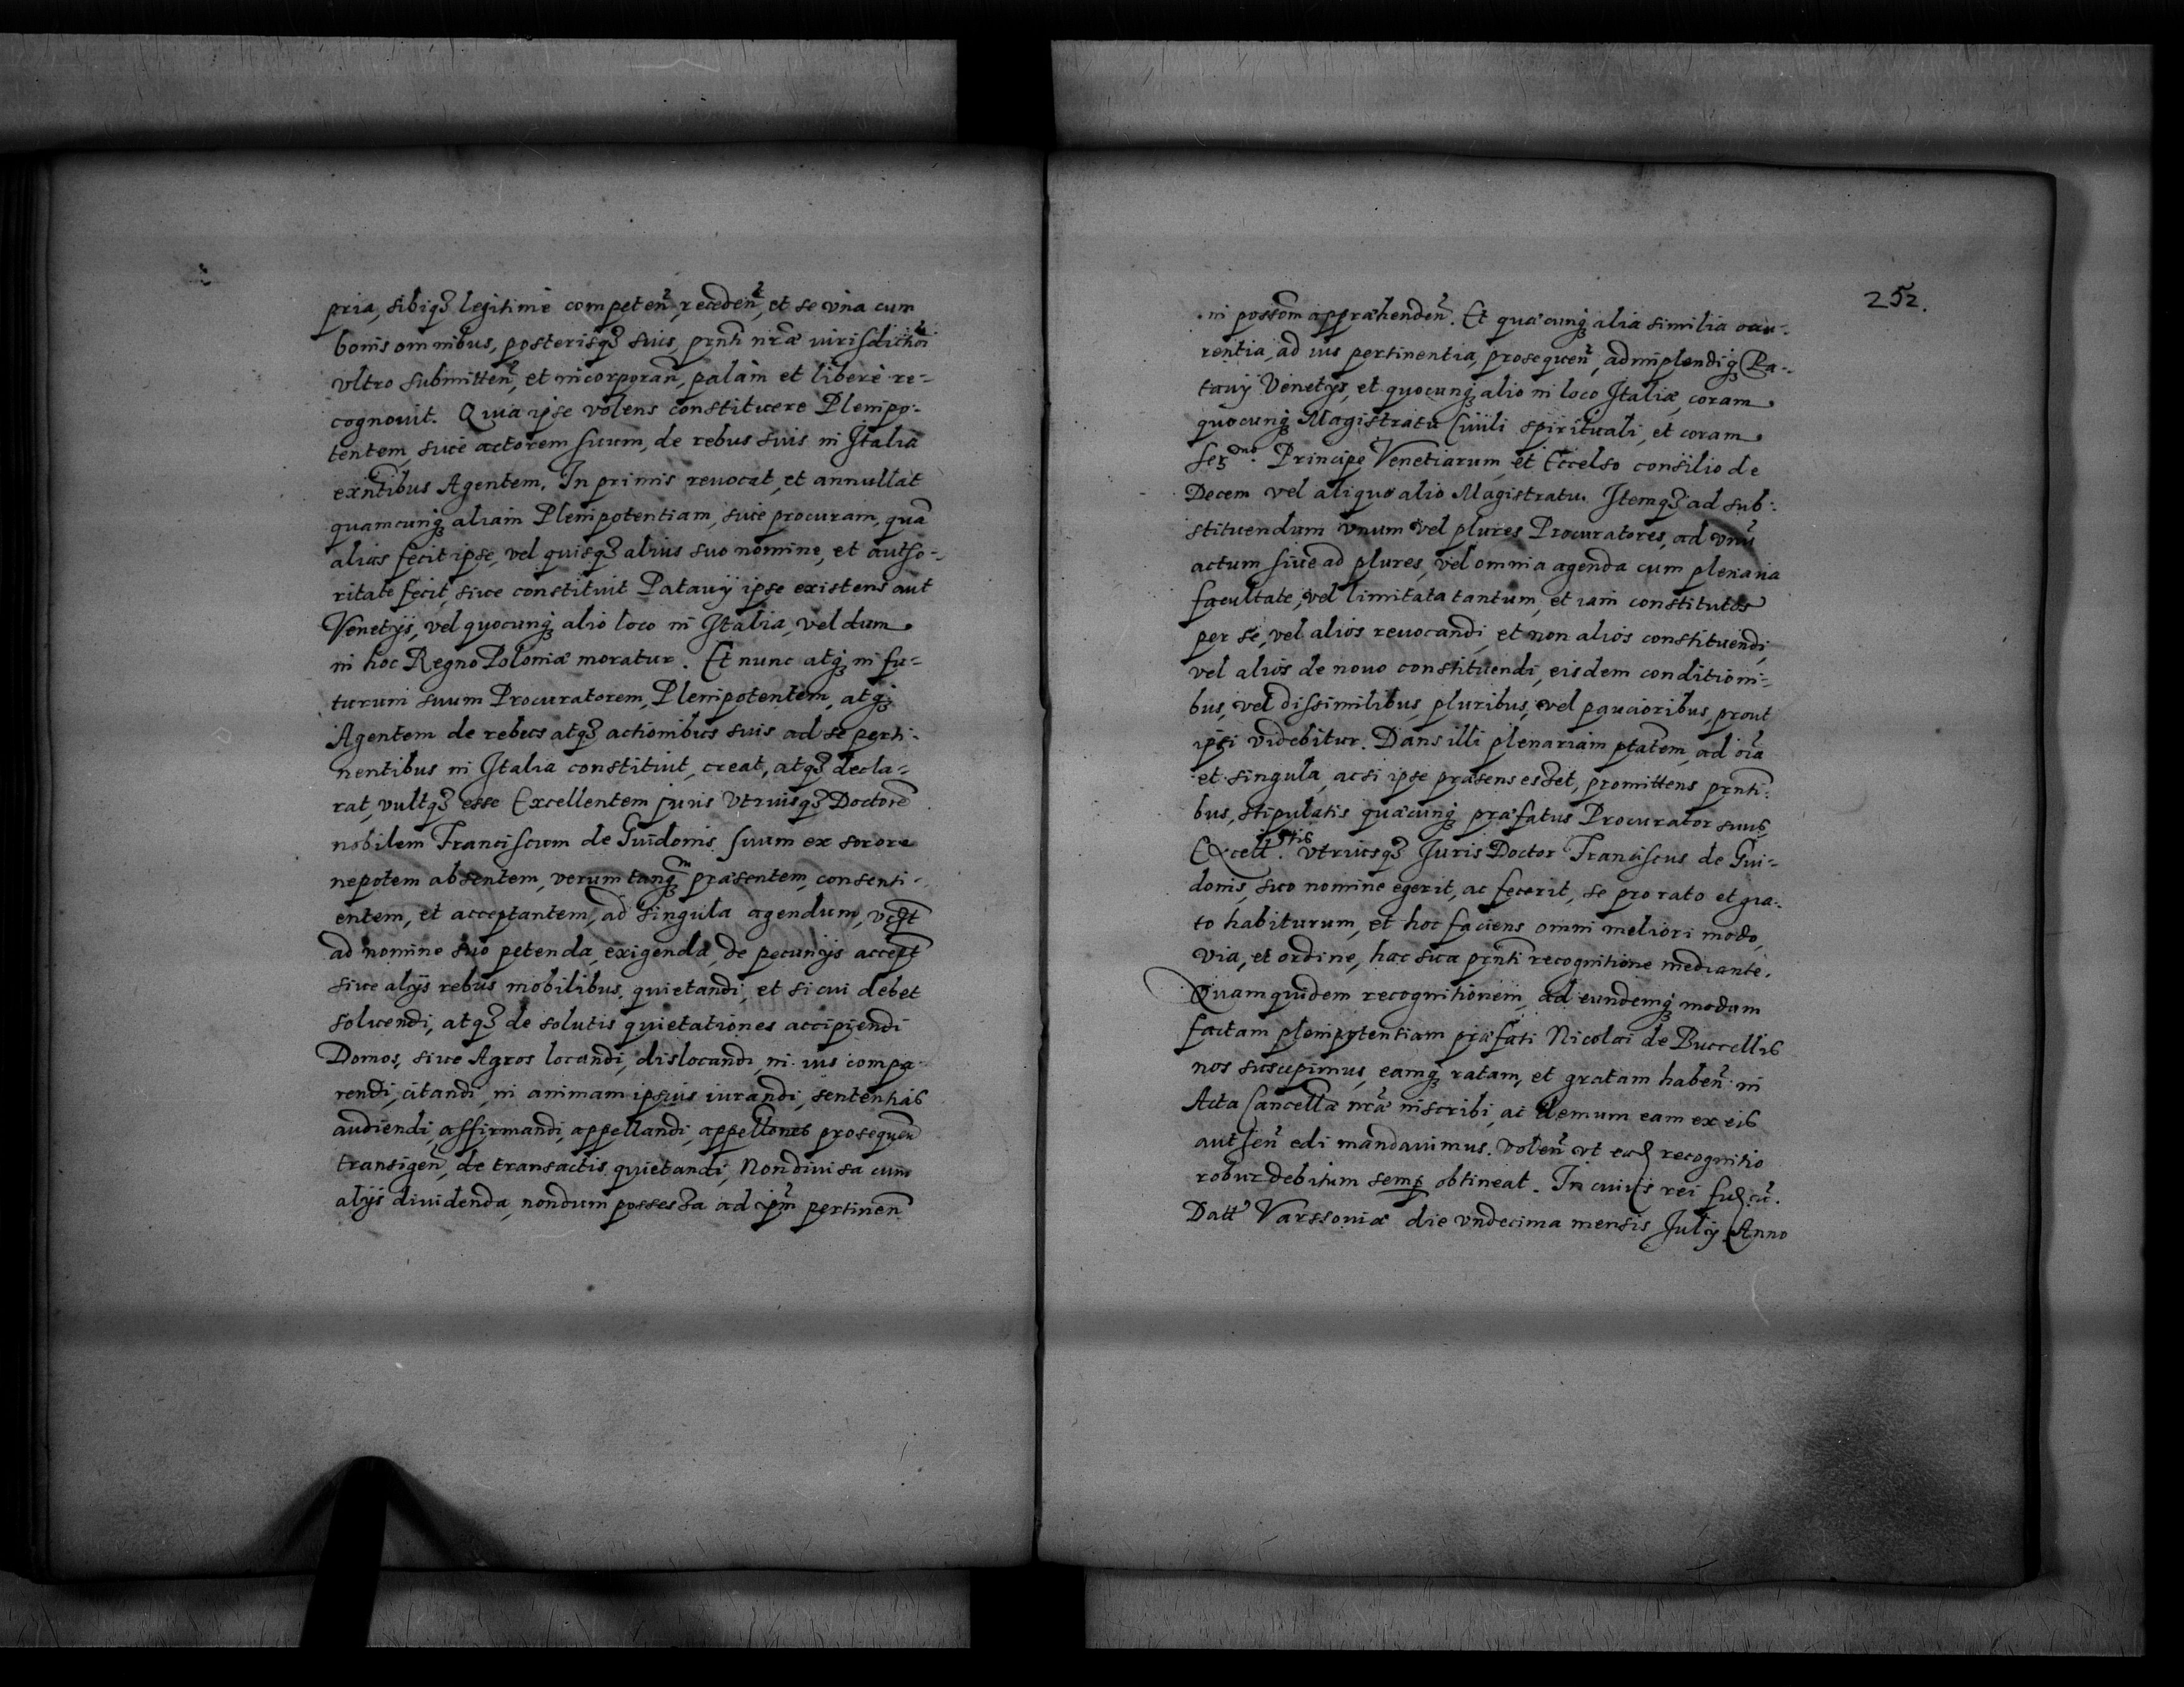 pria, sibiqȝ legitime competen̄, receden̄, et se vna cum
bonis omnibus, posterisqȝ suis, prn̄ti nr̄æ iurisdictioī
vltro submitten̄, et incorporan̄, palam et liberè re-
cognouit. Quia ipse volens constituere Plenipo-
tentem, siue actorem suum, de rebus suis in Italia
exn̄tibus Agentem. In primis reuocat, et annullat
quamcunqȝ aliam Plenipotentiam, siue procuram, quā
alias fecit ipse, vel quisqȝ alius suo nomine, et autho-
ritate fecit, siue constituit Patauij ipse existens aut
Venetijs, vel quocunqȝ alio loco in Italia, vel dum
in hoc Regno Poloniæ moratur. Et nunc atqȝ in fu-
turum suum Procuratorem, Plenipotentem, atqȝ
Agentem de rebus atqȝ actionibus suis ad se perti-
nentibus in Italia constituit, creat, atqȝ decla-
rat, vultqȝ esse Excellentem Juris Vtriusqȝ Doctorē
nobilem Franciscum de Guidonis suum ex sorore
nepotem absentem, verum tanqȝm præsentem, consenti-
entem, et acceptantem, ad singula agendum, vȝt
ad nomine suo petenda, exigenda, de pecunijs accept̄
siue alijs rebus mobilibus, quietandi, et si cui debet
soluendi, atqȝ de solutis quietationes accipiendi
Domos, siue Agros locandi, dislocandi, in ius compa-
rendi, citandi, in animam ipsius iurandi, sententias
audiendi, affirmandi, appellandi, appellōnes prosequen̄
transigen̄, de transactis quietandi, Non diuisa cum
alijs diuidenda, nondum possessa ad ipm̄ pertinen̄
252.
in possōm appræhenden̄. Et quæcunqȝ alia similia occu-
rentia, ad ius pertinentia, prosequen̄, adimplendiqȝ Pa-
tauij Venetijs, et quocunqȝ alio in loco Italiæ, coram
quocunqȝ Magistratu Ciuili spirituali, et coram
Serᵐᵒ. Principe Venetiarum, et Eccelso consilio de
Decem vel aliquo alio Magistratu. Itemqȝ ad sub-
stituendum vnum vel plures Procuratores, ad vnū
actum siue ad plures, vel omnia agenda cum plenaria
facultate, vel limitata tantum, et iam constitutos
per se, vel alios reuocandi, et non alios constituendi,
vel alios de nouo constituendi, eisdem conditioni-
bus, vel dissimilibus, pluribus, vel paucioribus, prout
ipsi videbitur. Dans illi plenariam ptātem, ad oīa
et singula, acsi ipse præsens esset, promittens prn̄ti-
bus, stipulatis quæcunqȝ præfatus Procurator suus
Excell.ᵗⁱˢ vtriusqȝ Juris Doctor Franciscus de Gui-
donis, suo nomine egerit, ac fecerit, se pro rato et gra-
to habiturum, et hoc faciens omni meliori modo,
via, et ordine, hac sua prn̄ti recognitione mediante.
Quam quidem recognitionem, ad eundemqȝ modum
factam plenipotentiam præfati Nicolai de Buccellis
nos suscepimus, eamqȝ ratam, et gratam haben̄ in
Acta Cancellæ nr̄æ inscribi, ac demum eam ex eis
authen̄ edi mandauimus. volen̄ vt ead recognitio
robur debitum semp obtineat. In cuius rei fid cū.
Datt Varssouiæ die vndecima mensis Julij Anno